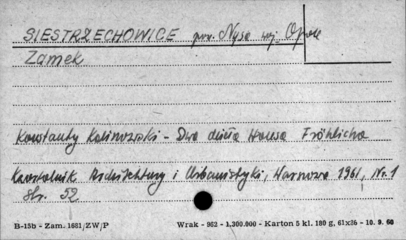 SIESTRZECHOWICE pow. Nysa woj. Opole
Zamek
Konstanty Kalinowski - Dwa dzieła Hansa Fröhlicha
Kwartalnik Architektury i Urbanistyki, Warszawa 1961, Nr. 1
str. 52
B-15b - Zam. 1681/ZW/P Wrak - 962 - 1.300.000 - Karton 5 kl. 180 g, 61x26 - 10. 9. 60